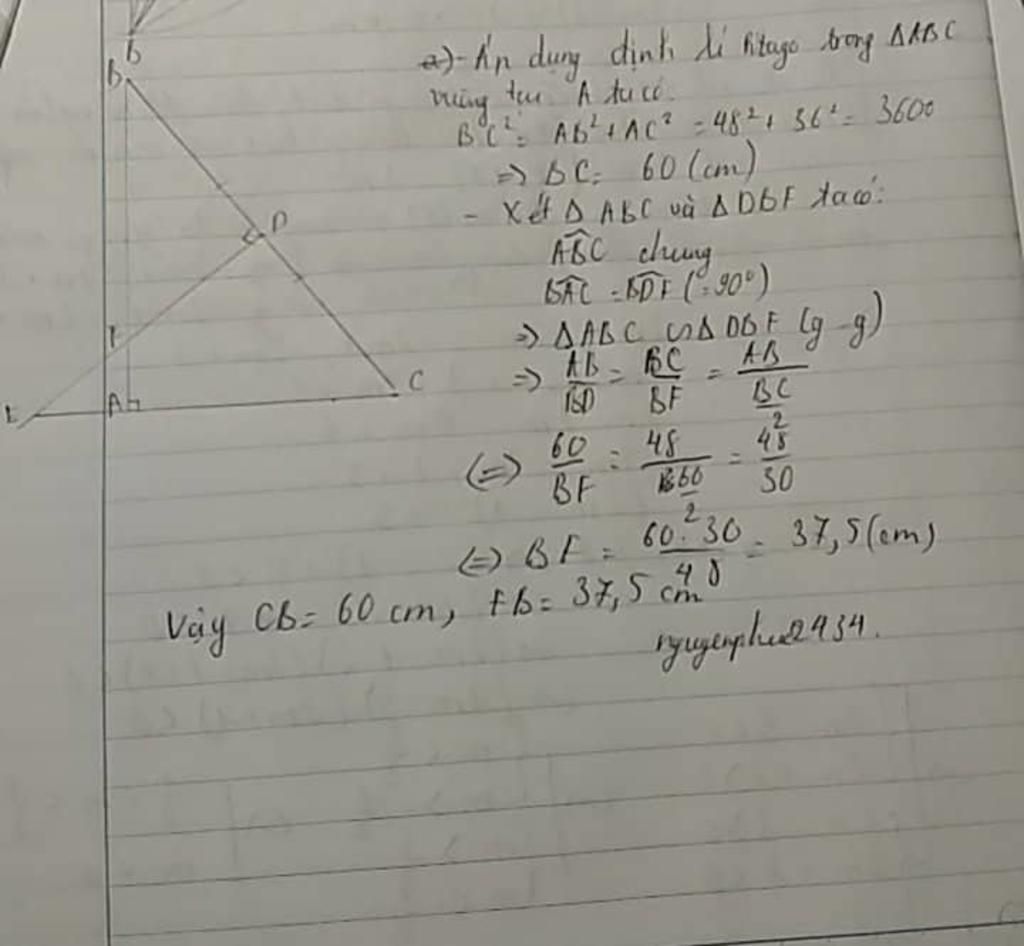 B
B
D
F
A
E
C
a) - Áp dụng định lí Pitago trong ΔABC
vuông tại A ta có.
BC² = AB² + AC² = 48² + 36² = 3600
=> BC = 60 (cm)
- Xét Δ ABC và Δ DBF ta có:
\widehat{ABC} chung
\widehat{BAC} = \widehat{BDF} (=90°)
=> ΔABC ∽ Δ DBF (g-g)
=> \frac{AB}{BD} = \frac{BC}{BF} = \frac{AB}{\frac{BC}{2}}
(=) \frac{60}{BF} = \frac{48}{\frac{60}{2}} = \frac{48}{30}
(=) BF = \frac{60.30}{48} = 37,5 (cm)
Vậy CB = 60 cm, FB = 37,5 cm